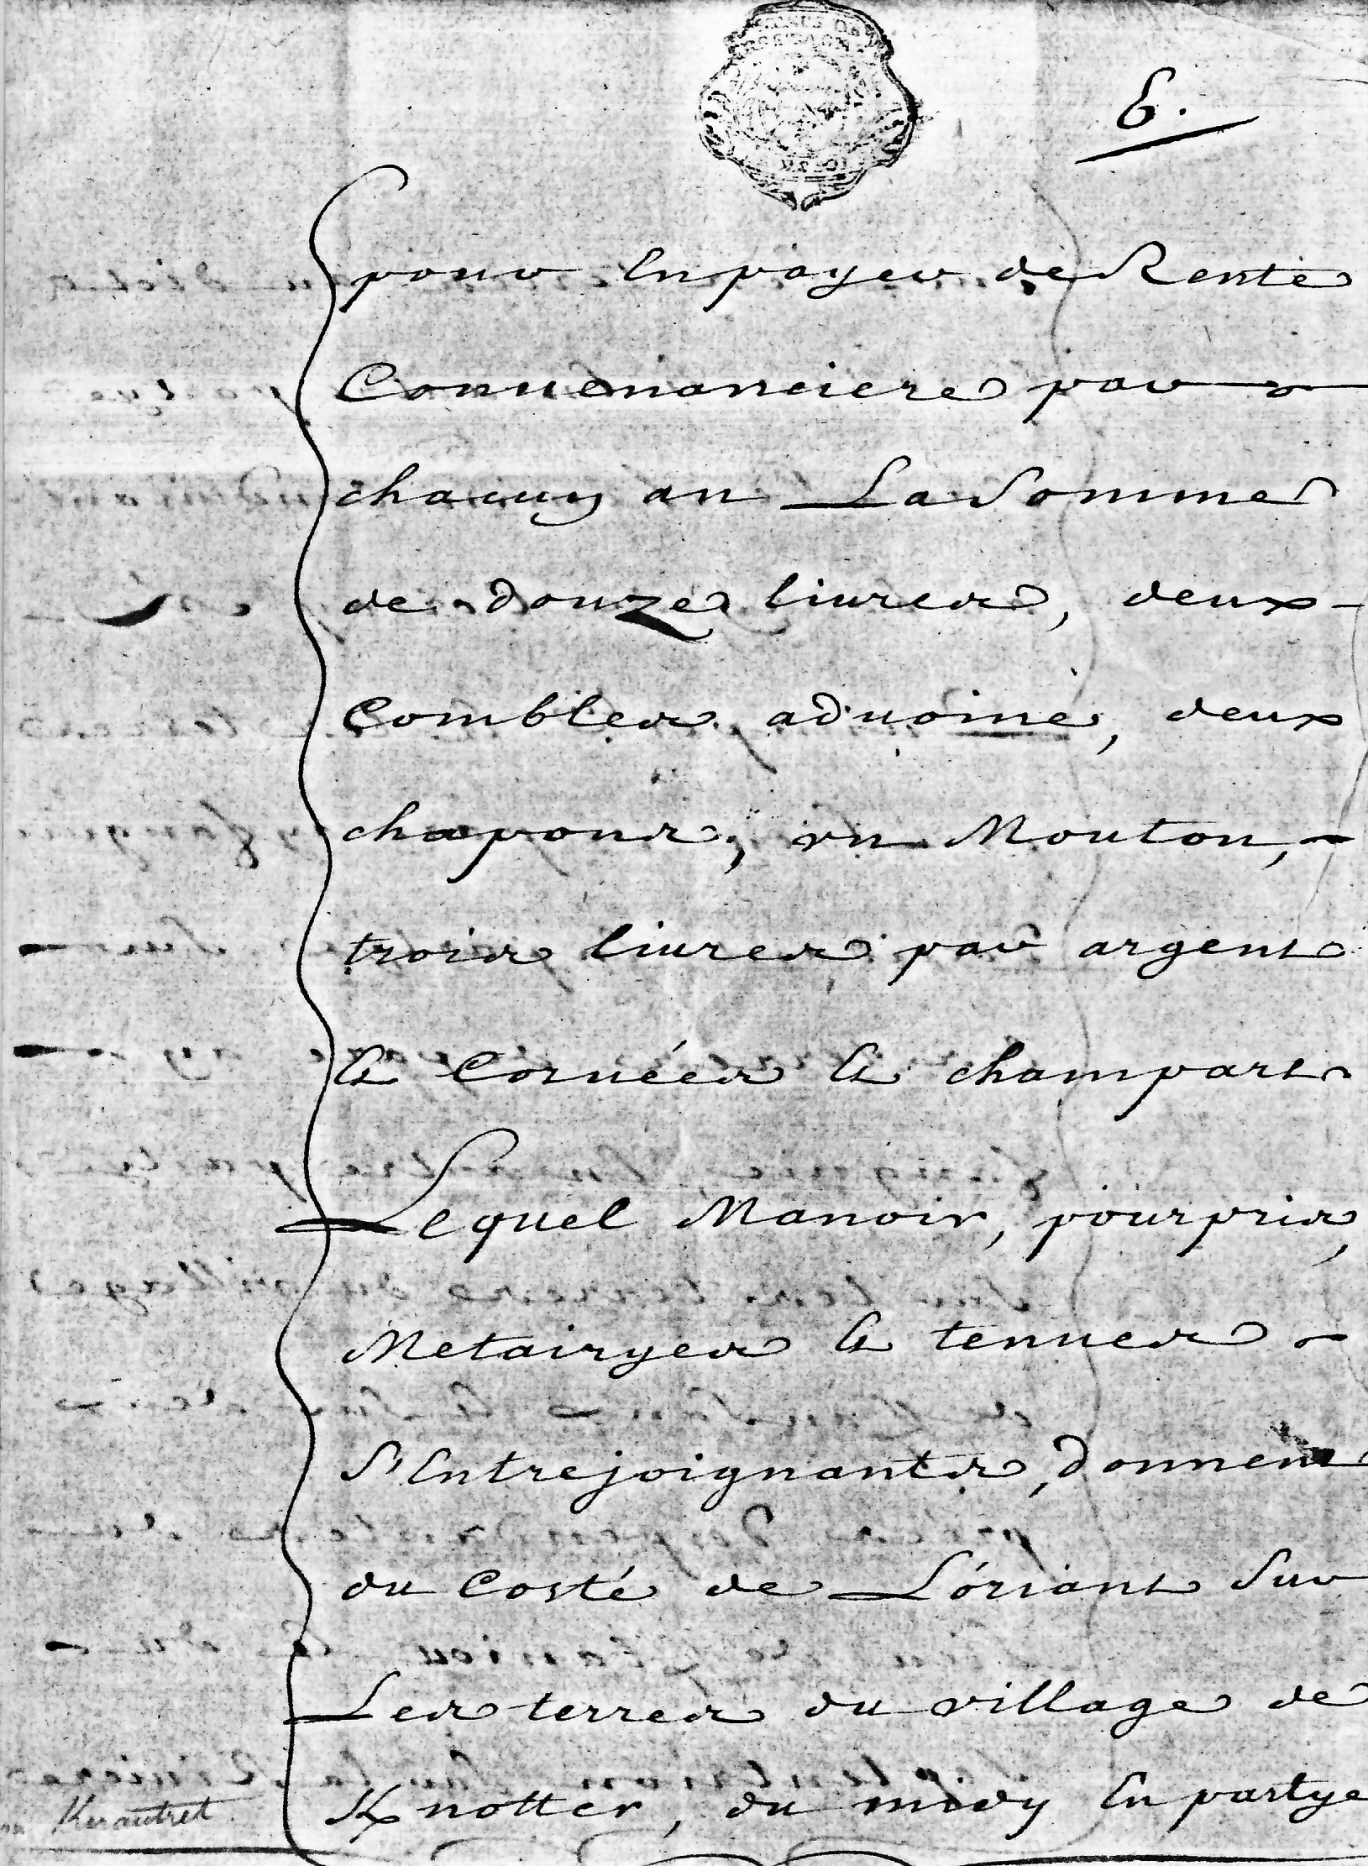 6.
pour En payer de Rente
Conuenanciere par
chacun an La Somme
de douze liures, deux
Combles aduoine, deux
chapons, vn Mouton,
trois liures par argent
Et Coruées Et champart
Lequel Manoir, pourpris,
Metairyes Et tenues
S'Entrejoignants, donnent
du Costé de L'óriant Sur
Les terres du village de
Knotter, du midy En partye
Kerautret